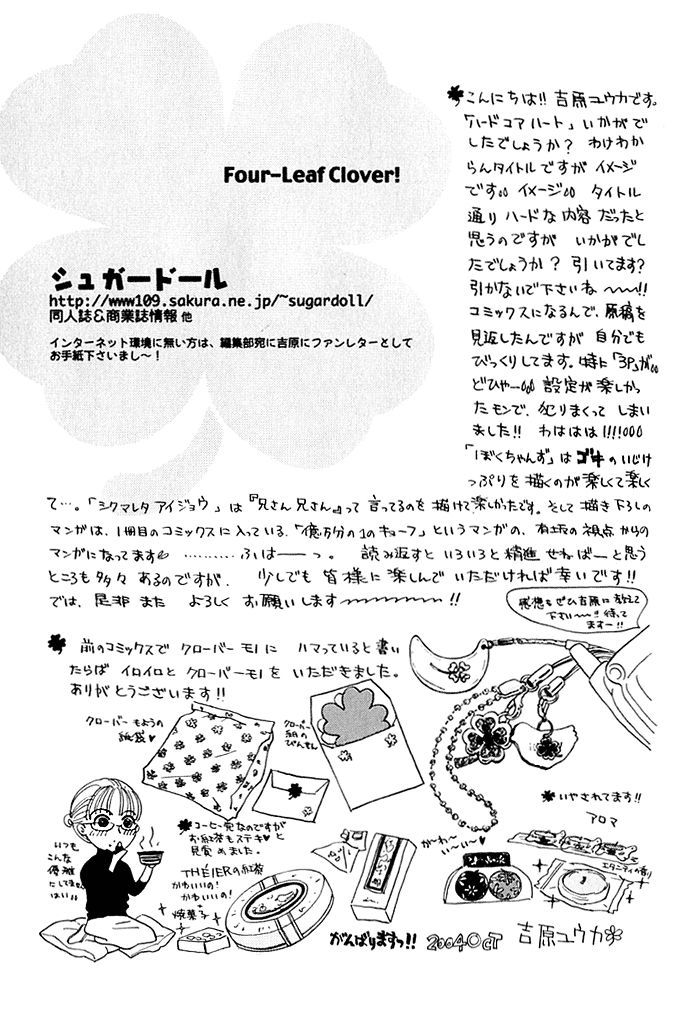 Four-Leaf Clover!
シュガードール
http://www109.sakura.ne.jp/~sugardoll/
同人誌&商業誌情報 他
インターネット環境に無い方は、編集部宛に吉原にファンレターとして
お手紙下さいまし〜!
こんにちは!! 吉原ユウカです。
「ハードコアハート」いかがで
したでしょうか? わけわか
らんタイトルですが イメージ
です。。イメージ。。 タイトル
通り ハードな内容 だったと
思うのですが いかがでし
たでしょうか? 引いてます?
引かないで下さいね 〜〜!!
コミックスになるんで、原稿を
見返したんですが 自分でも
びっくりしてます。時に「3P」が。。
どひゃー。。。 設定が楽しかっ
たモンで、犯りまくって しまい
ました!! わははは!!!!。。。
「ぼくちゃんず」は のいじけ
っぷりを描くのが楽しくて楽しく
て…。「シクマレタ アイジョウ」は『兄さん兄さん』って 言ってるのを 描けて楽しかったです。そして描き下ろしの
マンガは、1冊目のコミックスに入っている、「億万分の1のキューブ」というマンガの、有坂の視点からの
マンガになってます ………ふぃはーーっ。 読み返すと いろいろと 精進 せねばーと思う
ところも多々 あるのですが、 少しでも 皆様に楽しんで いただければ 幸いです!!
では、是非 また よろしく お願いします〜〜〜〜!!
感想もぜひ吉原に教えて
下さい〜!待って
ますー!!
前のコミックスで クローバーモノに ハマっていると書い
たらば イロイロと クローバーモノを いただきました。
ありがとうございます!!
クローバーもようの
紙袋♥
クローバー
柄の
びんせん
いつも
こんな
優雅
にしてません
はい。。
コーヒー党なのですが
お紅茶もステキ♥と
見覚めました。
THÉIERの紅茶
かわいいの!
かわいいの!
焼菓子
がーわ〜
い〜い〜♥
いやされてます!!
アロマ
エタニティの香り
がんばりますっ!!
2004 Oct
吉原ユウカ